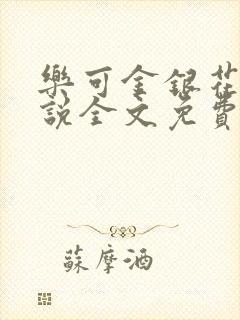 樂可金銀花
說全文免費
蘇摩酒